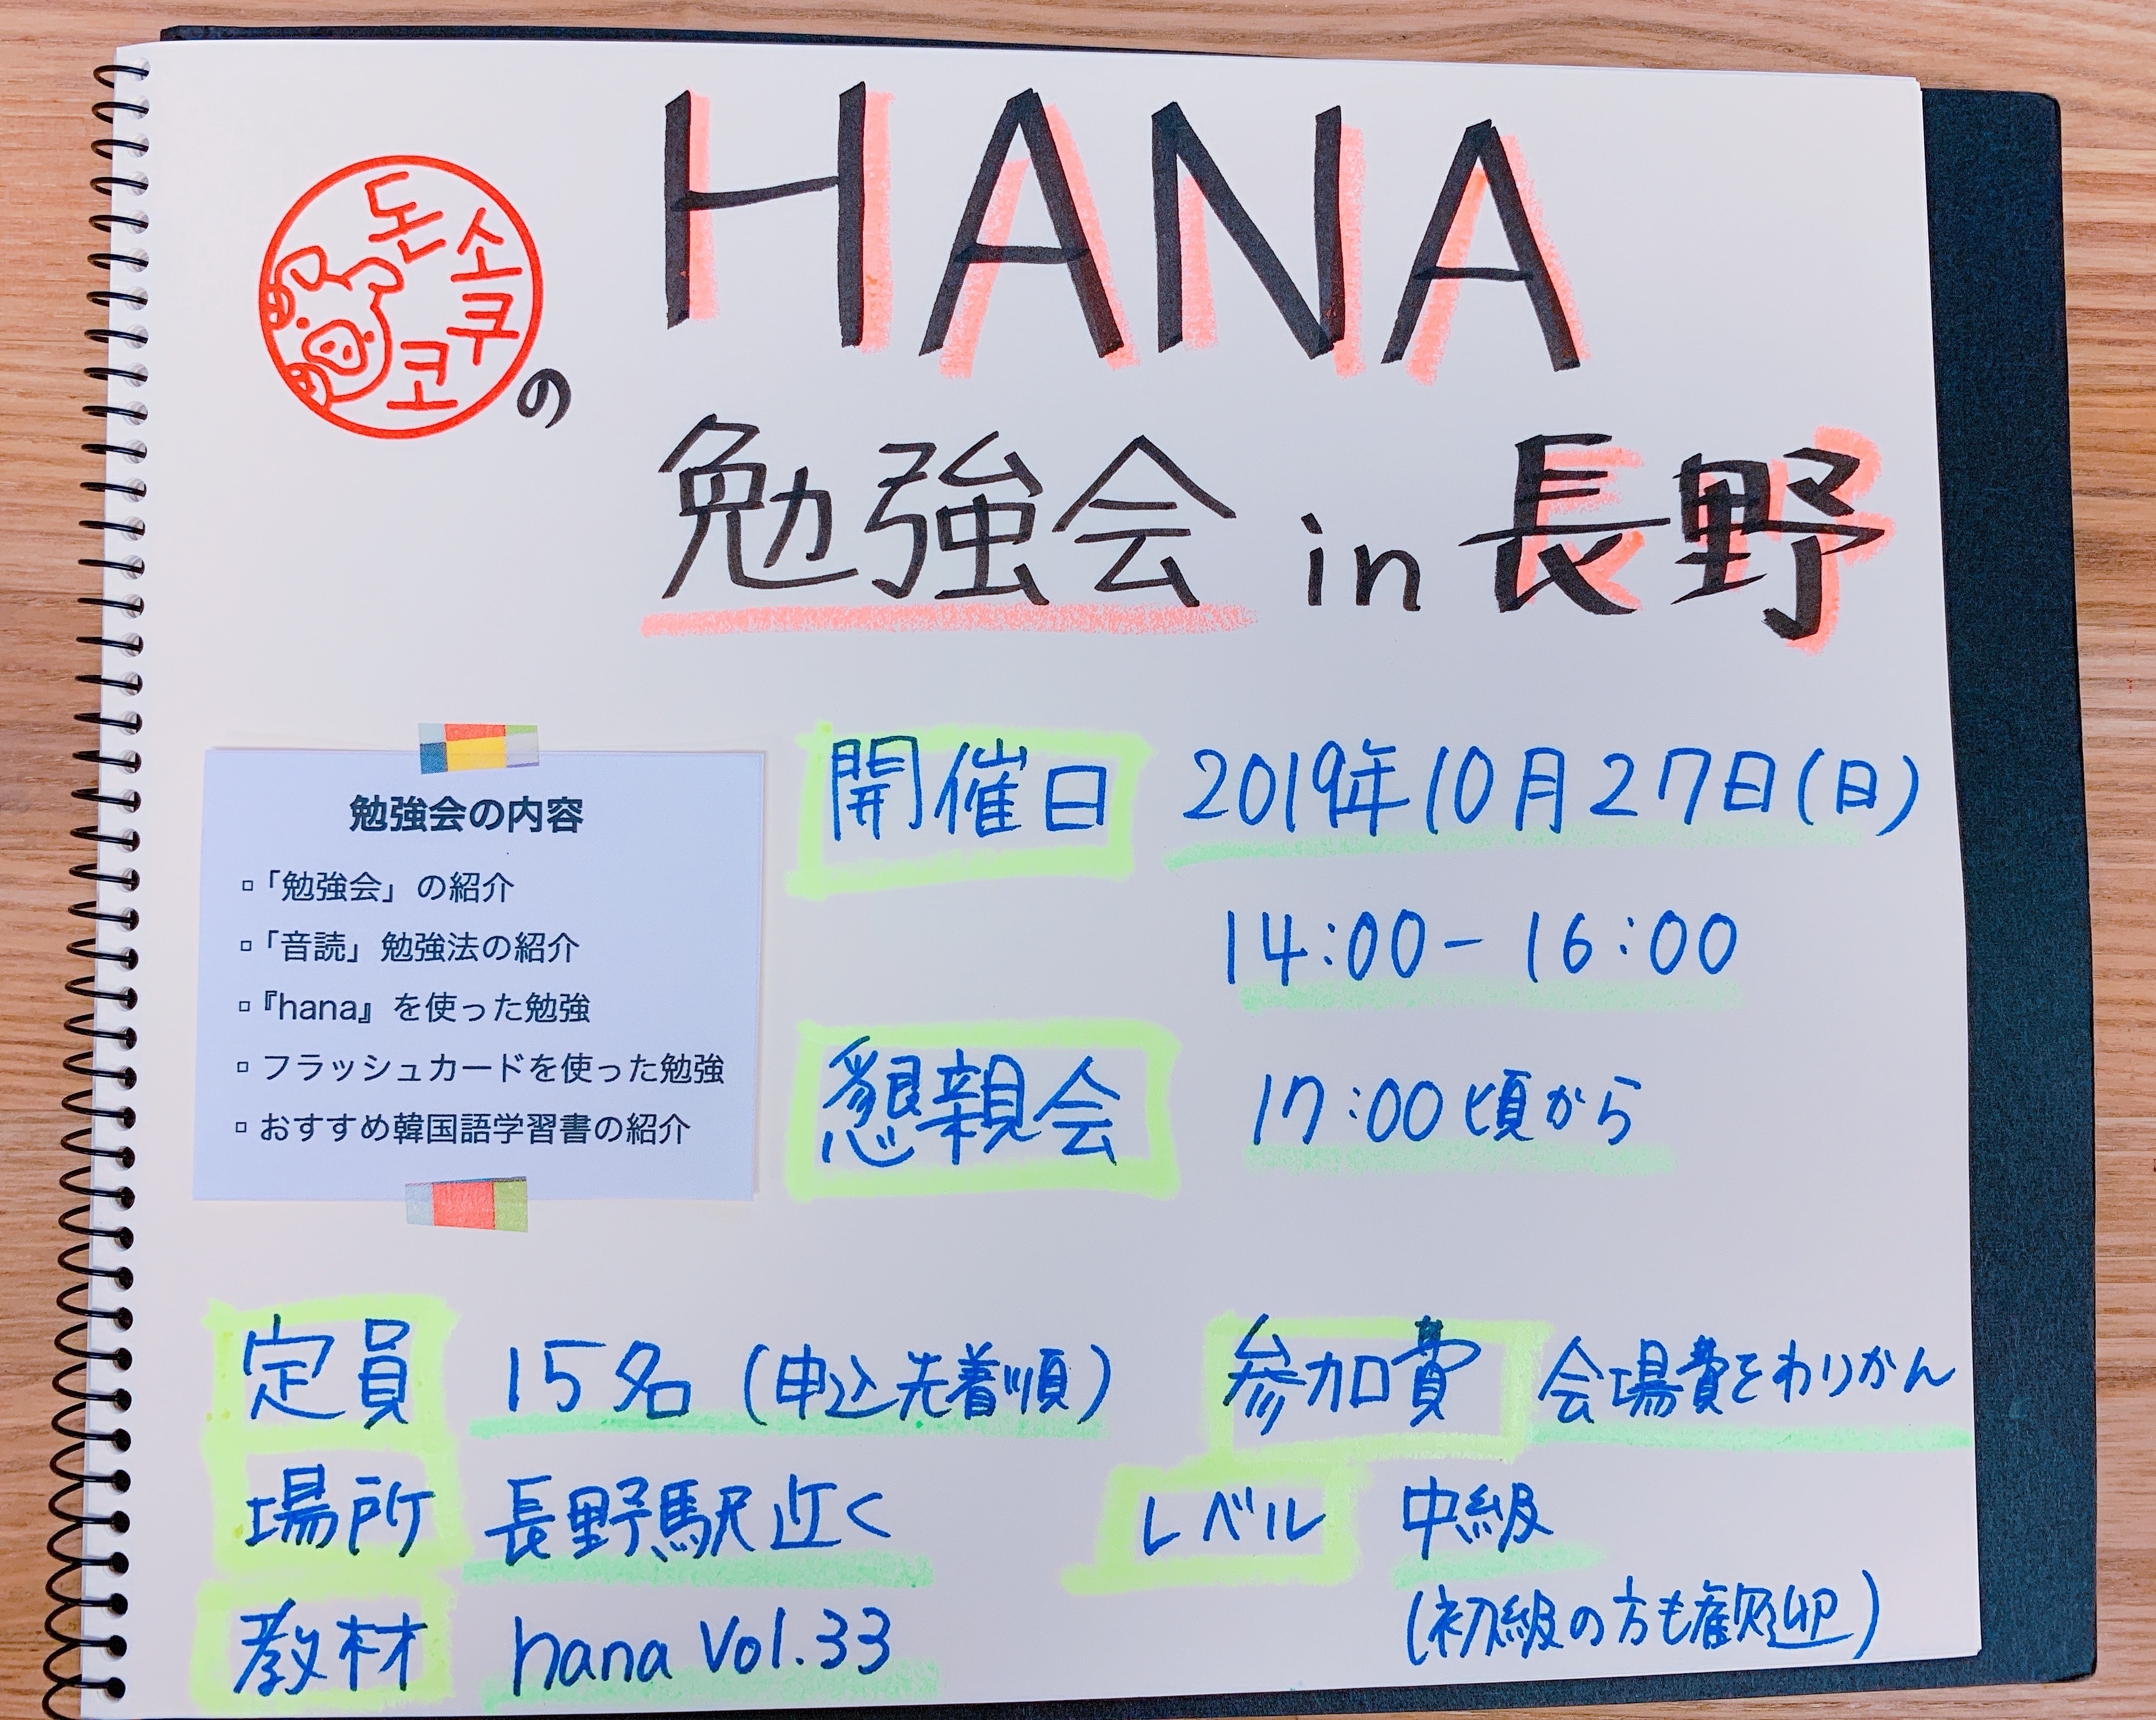 돈소쿠코の
HANA
勉強会 in 長野
勉強会の内容
▫「勉強会」の紹介
▫「音読」勉強法の紹介
▫『hana』を使った勉強
▫ フラッシュカードを使った勉強
▫ おすすめ韓国語学習書の紹介
開催日 2019年10月27日(日)
14:00- 16:00
懇親会 17:00頃から
定員 15名 (申込先着順)
参加費 会場費をわりかん
場所 長野駅近く
レベル 中級
(初級の方も歓迎)
教材 hana Vol.33